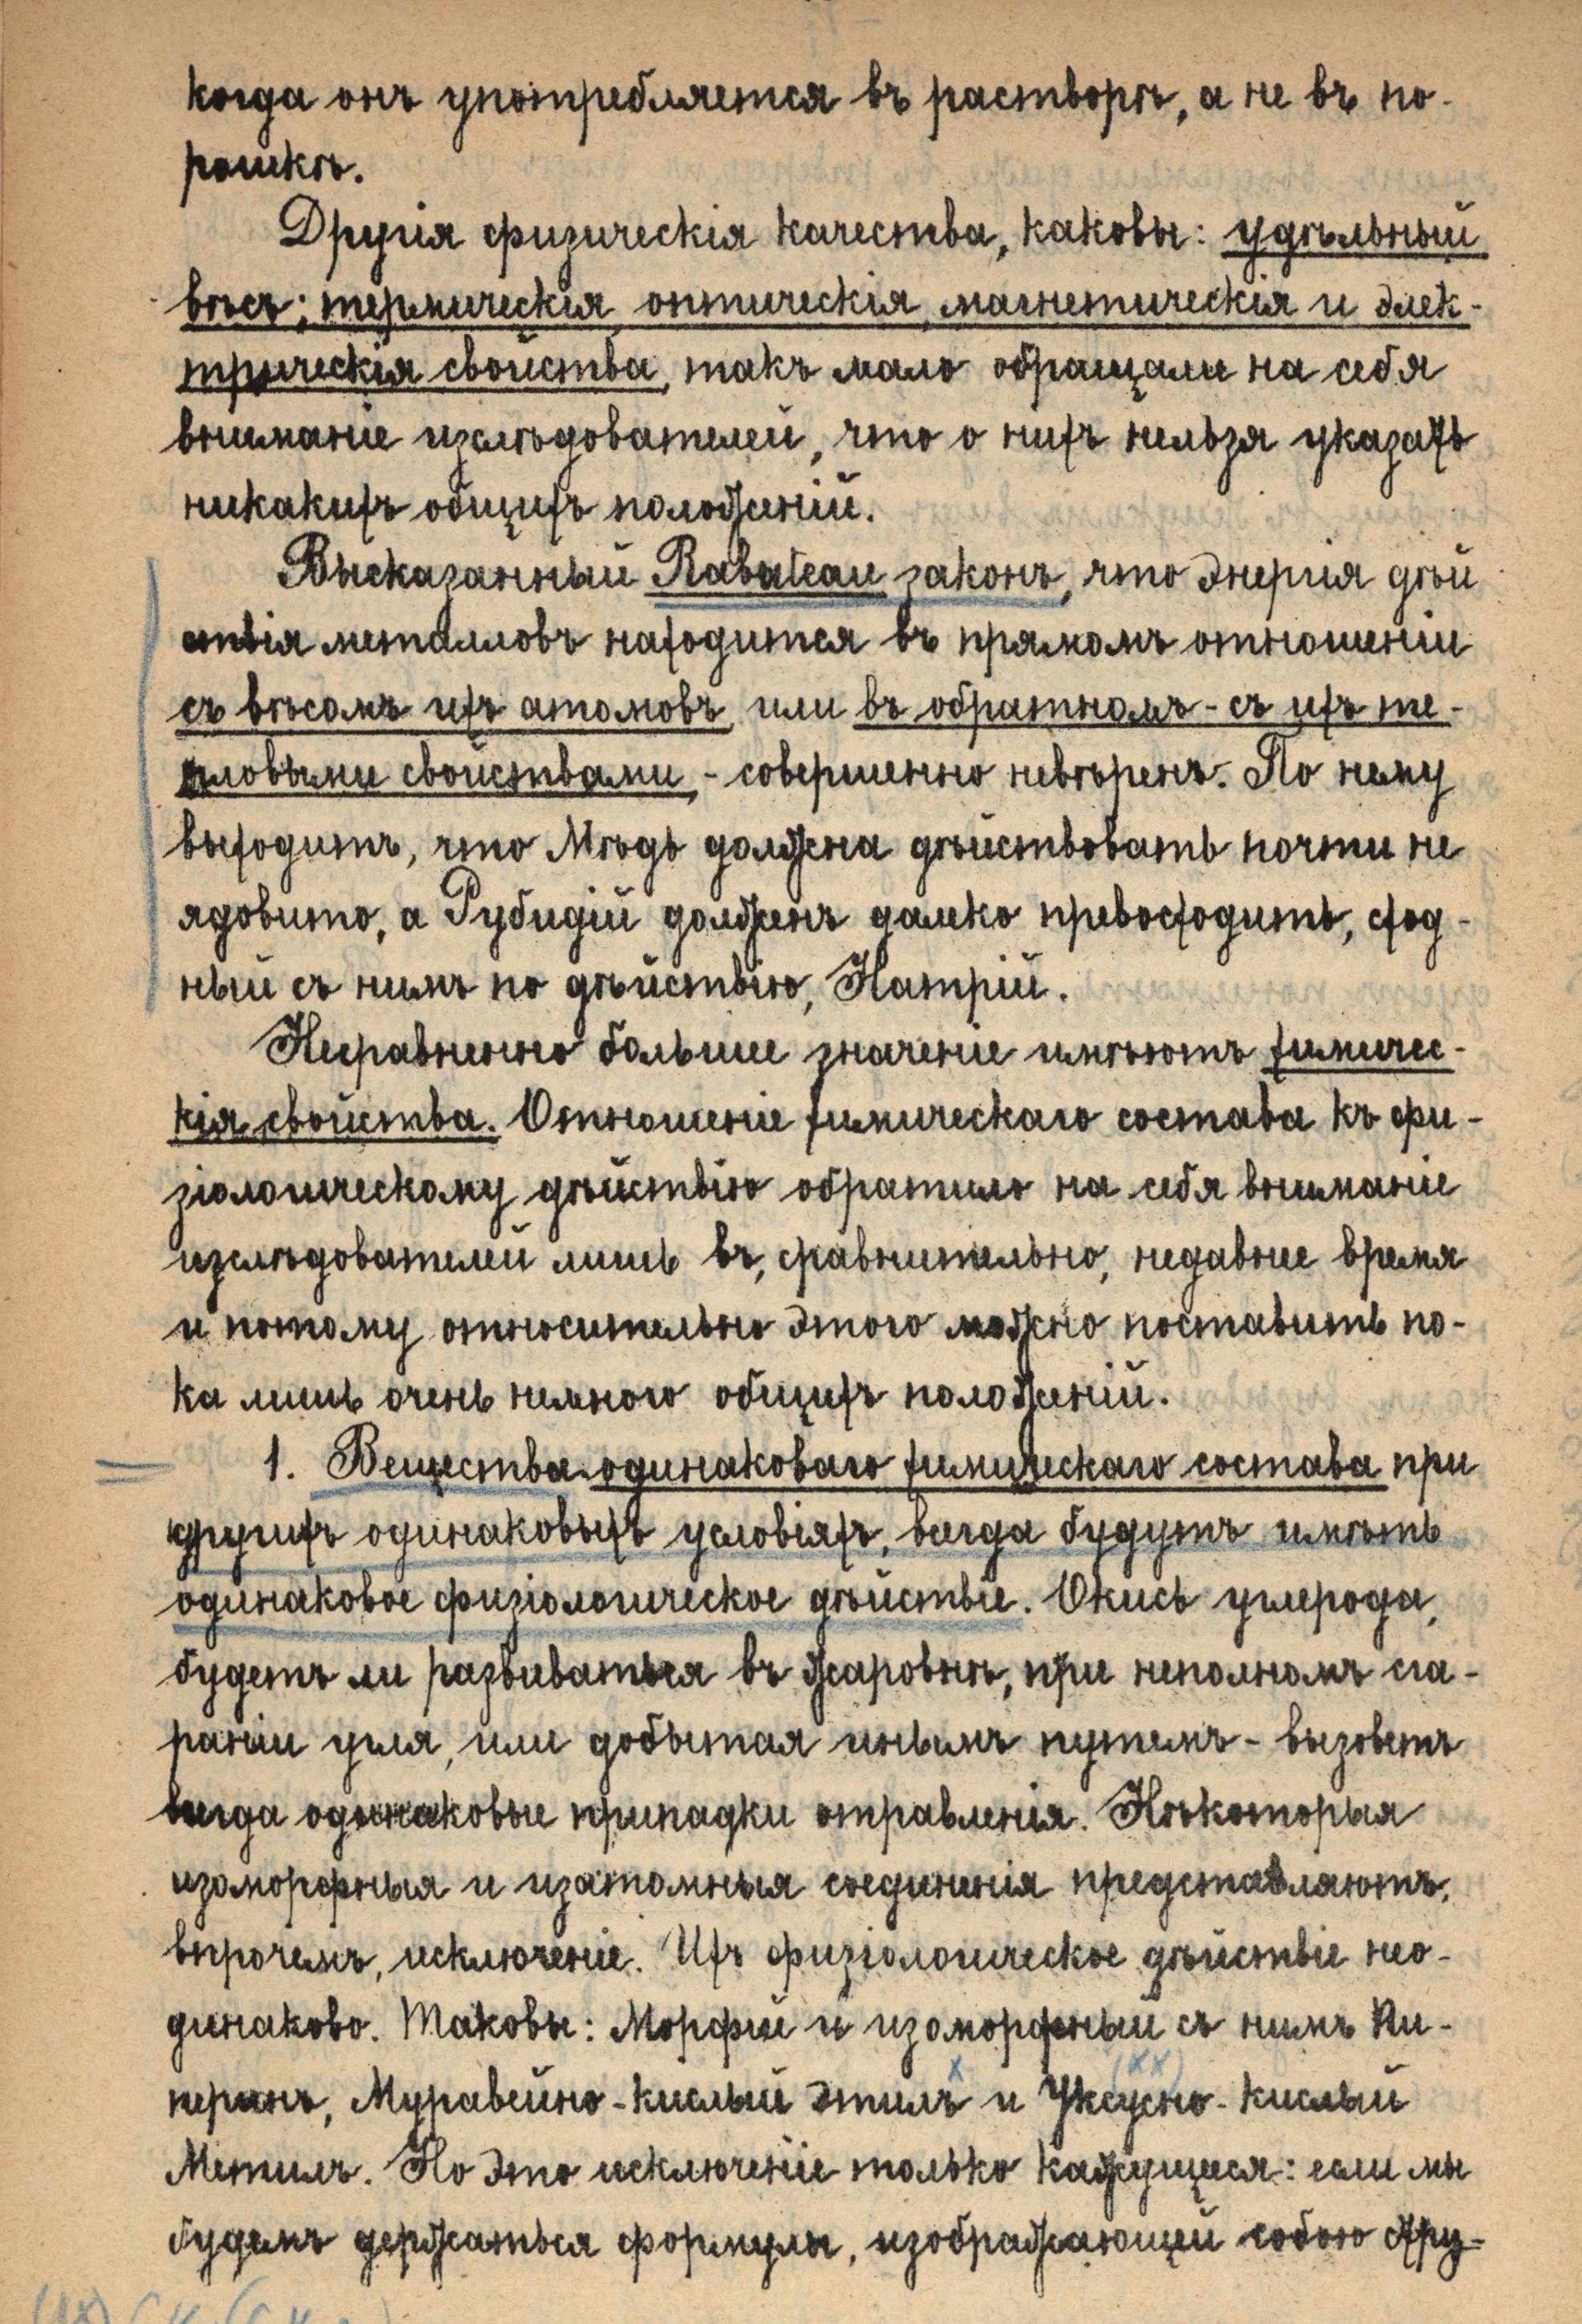 когда онъ употребляется въ растворѣ, а не въ по-
рошкѣ.
Другія физическія качества, каковы: удѣльный
вѣсъ; термическія, оптическія, магнетическія и элек-
трическія свойства, такъ мало обращали на себя
вниманіе изслѣдователей, что о нихъ нельзя указать
никакихъ общихъ положеній.
Высказанный Rabuteau законъ, что энергія дѣй
ствія металловъ находится въ прямомъ отношеніи
съ вѣсомъ ихъ атомовъ, или въ обратномъ - съ ихъ те-
пловыми свойствами, - совершенно невѣренъ. По нему
выходитъ, что Мѣдь должна дѣйствовать почти не
ядовито, а Рубидій долженъ далеко превосходить, сход-
ный съ нимъ по дѣйствію, Натрій.
Несравненно большее значеніе имѣютъ химичес-
кія свойства. Отношеніе химическаго состава къ фи-
зіологическому дѣйствію обратило на себя вниманіе
изслѣдователей лишь въ, сравнительно, недавнее время
и потому относительно этого можно поставить по-
ка лишь очень немного общихъ положеній.
1. Вещества одинаковаго химическаго состава при
другихъ одинаковыхъ условіяхъ, всегда будутъ имѣть
одинаковое физіологическое дѣйствіе. Окись углерода,
будетъ ли развиваться въ жаровнѣ, при неполномъ сга-
раніи угля, или добытая инымъ путемъ - вызоветъ
всегда одинаковые припадки отравленія. Нѣкоторыя
изоморфныя и изатомныя соединенія представляютъ,
впрочемъ, исключеніе. Ихъ физіологическое дѣйствіе нео-
динаково. Таковы: Морфій и изоморфный съ нимъ Пи-
перинъ, Муравейно-кислый Этилъ х и Уксусно-кислый (хх)
Метилъ. Но это исключеніе только кажущееся: если мы
будемъ держаться формулы, изображающей собою стру-